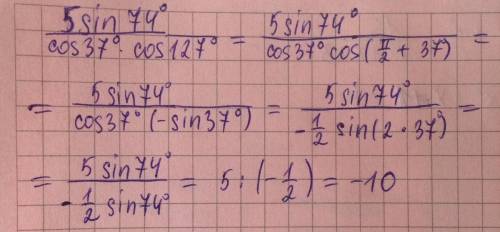 5 sin 74° / cos 37° · cos 127° = 5 sin 74° / cos 37° cos(π/2 + 37°) =
= 5 sin 74° / cos 37° (-sin 37°) = 5 sin 74° / -1/2 sin(2 · 37°) =
= 5 sin 74° / -1/2 sin 74° = 5 : (-1/2) = -10